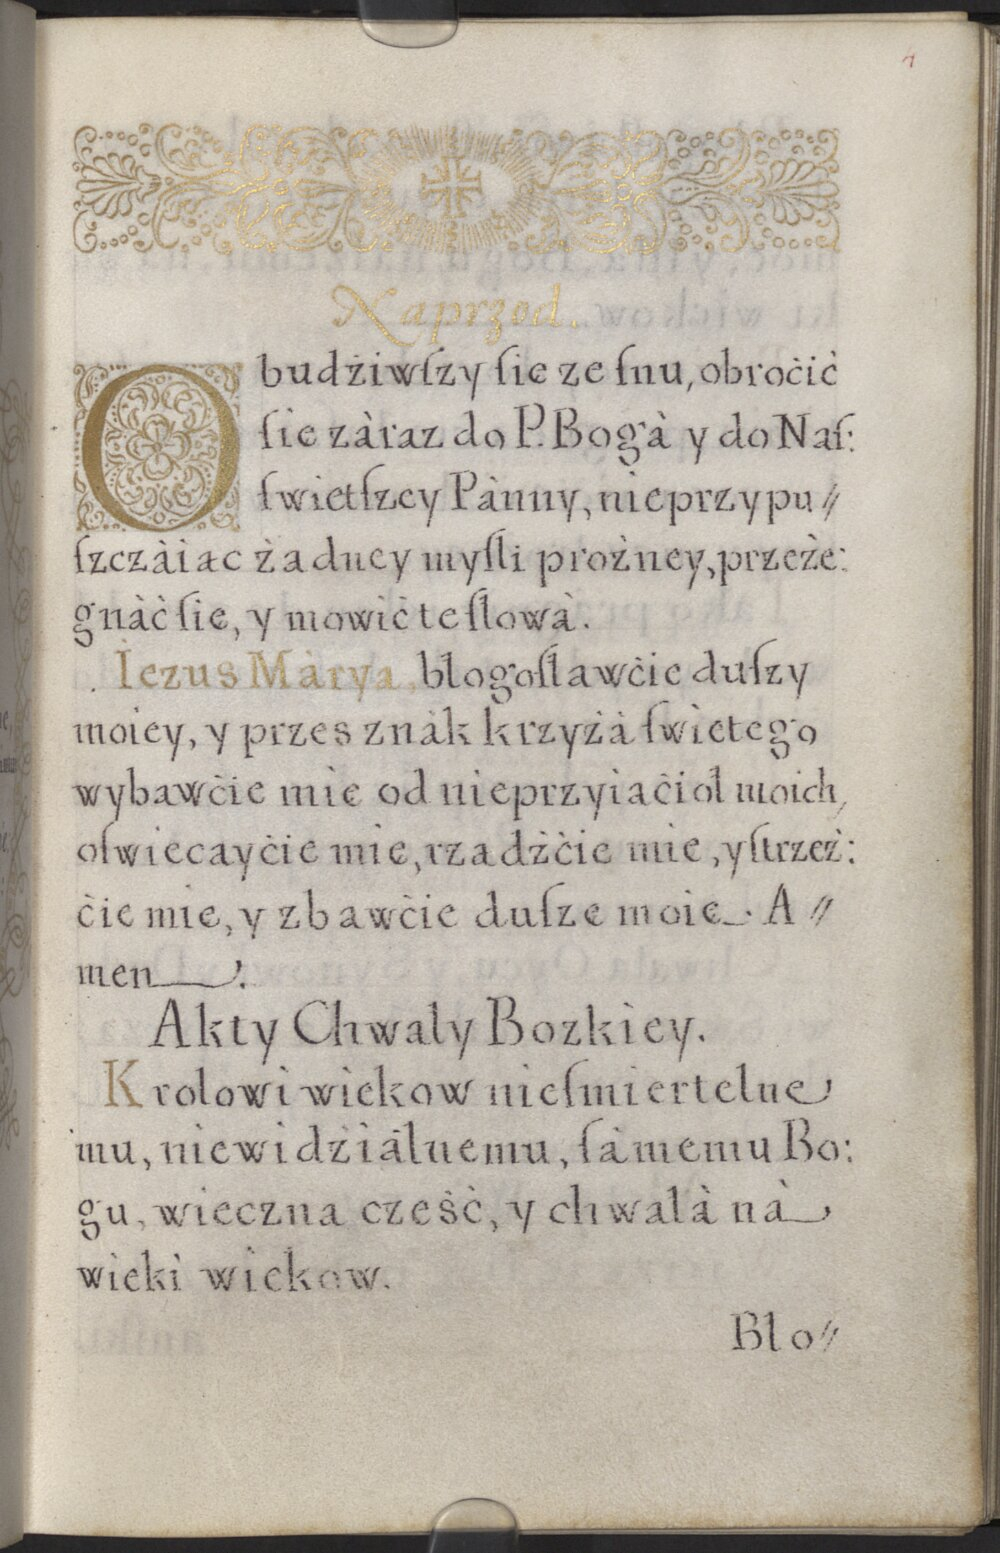 Naprzod.
Obudźiwſzy ſie ze ſnu, obroćić
ſie zàraz do P. Bogà y do Naſ:
ſwietſzey Pànny, nieprzypu//
ſzczàiac żadney myſli prożney, przeże:
gnàć ſie, y mowić te ſłowà.
Jezus Màrya, błogoſławćie duſzy
moiey, y przes znàk krzyżà ſwietego
wybawćie mie od nieprzyiaćioł moich,
oſwiecayćie mie, rzadźćie mie, y ſtrzeż:
ćie mie, y zbawćie duſze moie. A//
men.
Akty Chwały Bozkiey.
Krolowi wiekow nieſmiertelne
mu, niewidźiàlnemu, ſàmemu Bo:
gu, wieczna cześć, y chwałà nà
wieki wiekow.
Bło//